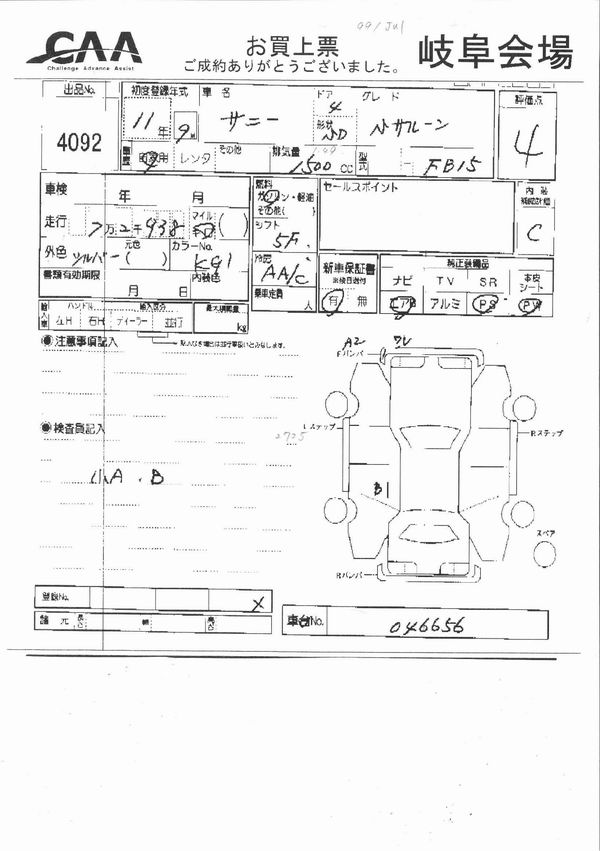 09/Jul
CAA
Challenge Advance Assist
お買上票
ご成約ありがとうございました。
岐阜会場
出品No.
4092
初度登録年式
11年 9月
車名
サニー
ドア
4
形状
グレード
評価点
4
車歴
自家用 レンタ
その他
排気量
1500 CC
型式
FB15
車検 年 月
走行 7万2千938
マイル
外色 シルバー
元色 ( )
カラーNo.
KG1
内装色
書類有効期限
月 日
燃料
ガソリン・軽油
その他( )
シフト
5F
冷房
AA/C
乗車定員 人
セールスポイント
内装
補助評価
C
新車保証書
有 無
純正装備品
ナビ TV SR 本皮シート
エアB アルミ PS PW
輸入車
ハンドル
左H 右H
輸入区分
ディーラー 並行
最大積載量
kg
記入なき場合は並行車扱いとみなします。
◉注意事項記入
◉検査員記入
2725
小A . B
A2 ワレ
Fバンパ
Lステップ
Rステップ
B1
スペア
Rバンパ
登録No.
X
諸元 長さ 幅 高さ
車台No.
046656